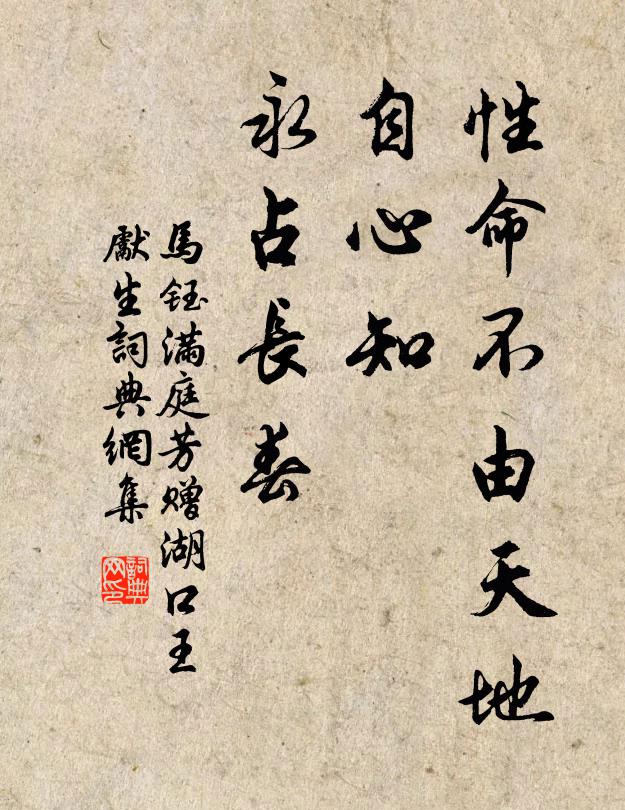 性命不由天地
自心知
永占長春
馬鈺滿庭芳贈湖口王
獻生詞典網集
詞典網印